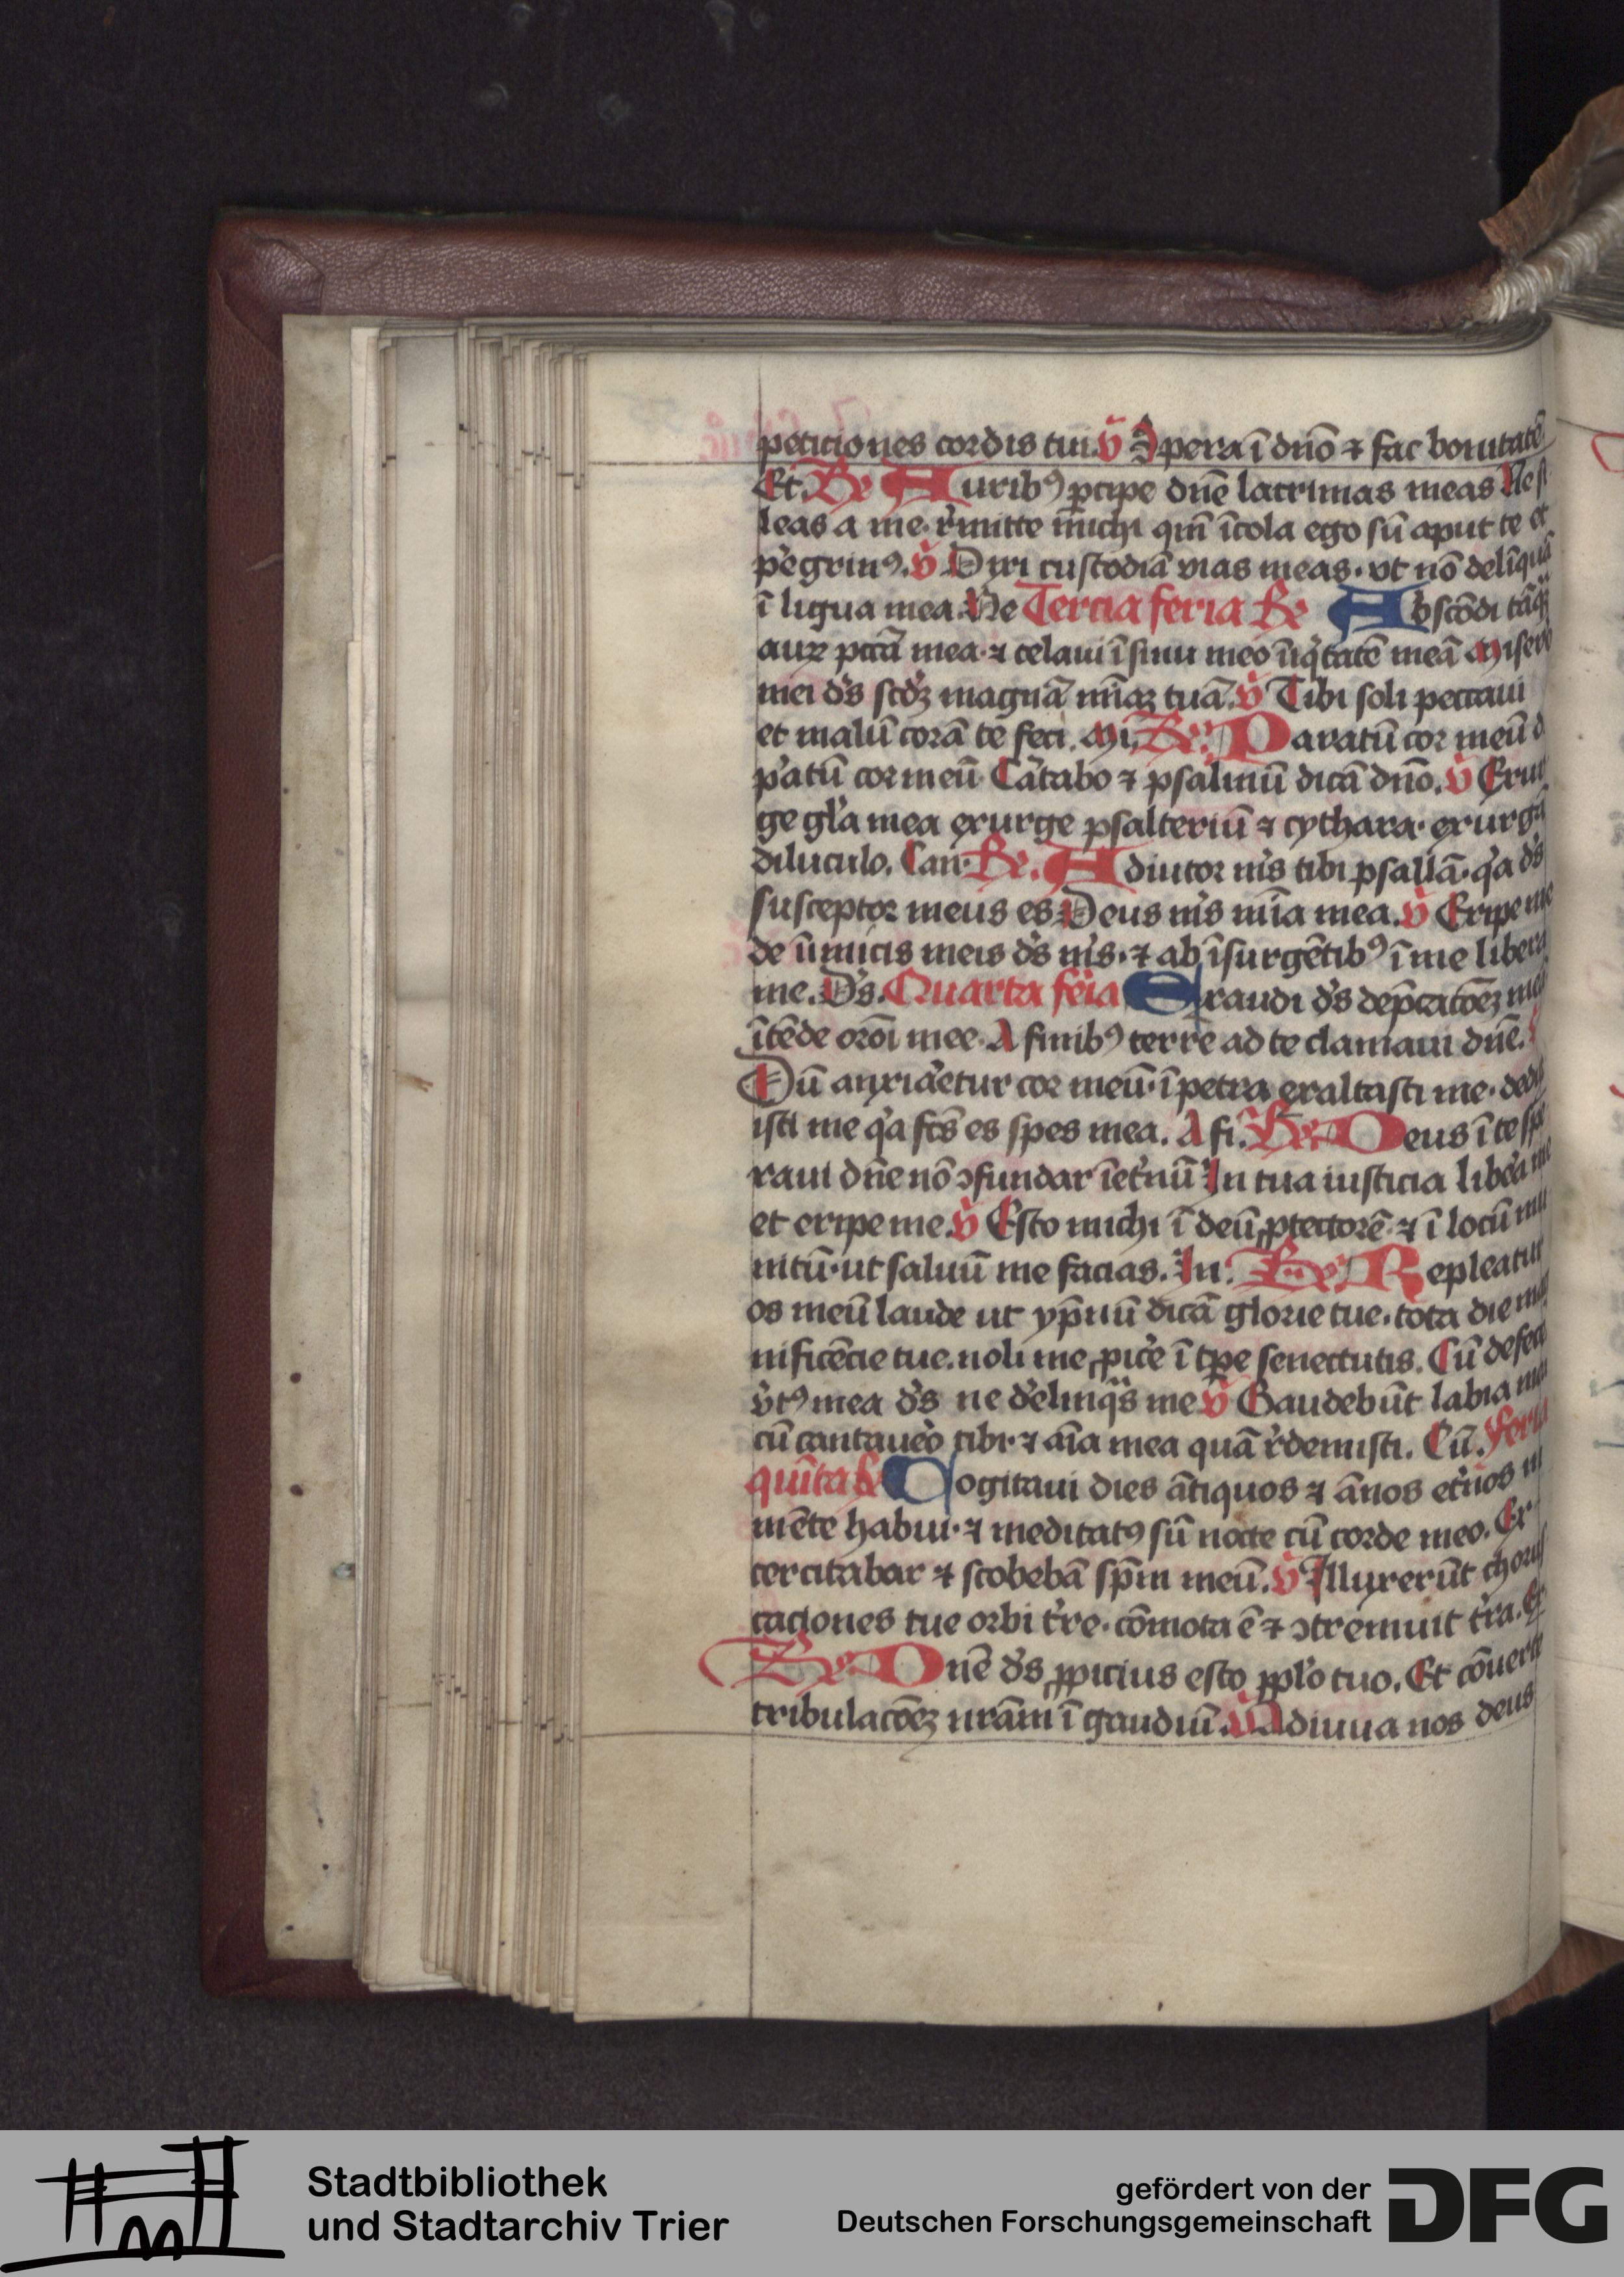 petitiones cordis tui. v̄ Spera ī dn̄o ⁊ fac bonitatē
Et. Re Auribꝰ ꝑcipe dn̄e lacrimas meas Ne si
leas a me. r̓mitte michi qm̄ īcola ego sū aput te et
p̓egrinꝰ. v̄ Dixi custodiā vias meas. vt nō delīquā
ī ligua mea. Ne Tercia feria Re Abscōdi tāqȝ
auꝝ pctā mea. ⁊ celaui ī sinu meo īiq̓tatē meā Misere
mei d̓s scd̓ȝ magnā mīaȝ tuā. v̄ Tibi soli peccaui
et malū corā te feci. Mi. Re. Paratū cor meū d
p̓atū cor meū Cātabo ⁊ psalmū dicā dn̄o. v̄ Exur
ge gl̓a mea exurge psalteriū ⁊ cythara. exurgā
diluculo. Can. Re. Adiutor m̓s tibi psallā. q̓a d̓s
susceptor meus es Deus m̓s mīa mea. v̄ Eripe me
de īimicis meis d̓s m̓s. ⁊ ab īsurgētibꝰ ī me libera
me. D̓s. Quarta fēia Exaudi d̓s dep̄catōeȝ meā
ītēde orōi mee. A finibꝰ terre ad te clamaui dn̄e. v̄
Dū anxiaretur cor meū. ī petra exaltasti me. dedux
isti me q̓a fc̄s es spes mea. A fi. Re. Deus ī te spe
raui dn̄e nō ↄfundar īet̓nū In tua iusticia lib̓a me
et eripe me. v̄ Esto michi ī deū ꝓtectorē. ⁊ ī locū mu
nitū. ut saluū me facias. In. Re. Repleatur
os meū laude ut yp̄nū dicā glorie tue. tota die mag
nificēcie tue. noli me ꝓic̓e ī tp̄e senectutis. Cū defece
v̓tꝰ mea d̓s ne d̓elinq̓s me v̄ Gaudebūt labia mea
cū cantaue̓o tibi. ⁊ aīa mea quā r̓demisti. Cū. Feria
quīta Re Cogitaui dies ātiquos ⁊ ānos et̓nos in
mēte habui. ⁊ meditatꝰ sū nocte cū corde meo. Ex
cercitabar ⁊ scobebā sp̄m meū. v̄ Illuxerūt chorus
caciones tue orbi t̓re. cōmota ē ⁊ ↄtremuit t̓ra. Ex
Re Dn̄e d̓s ꝓpicius esto ppl̓o tuo. Et cōuerte
tribulacōeȝ nrām ī gaudiū. v̄ Adiuua nos deus
Stadtbibliothek
und Stadtarchiv Trier
gefördert von der
Deutschen Forschungsgemeinschaft
DFG